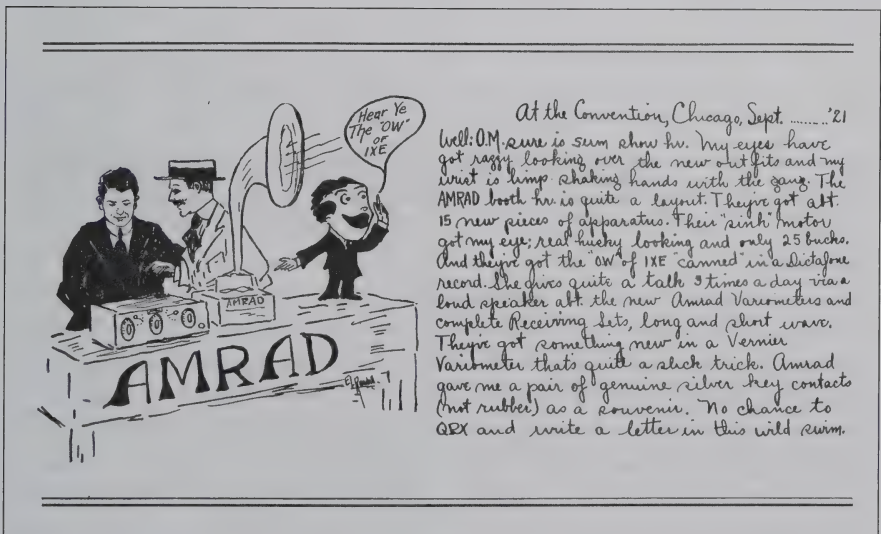 Hear Ye
The "OW"
OF
IXE
AMRAD
AMRAD
At the Convention, Chicago, Sept. ........'21
Well: O.M. sure is sum show hr. My eyes have
got razzy looking over the new outfits and my
wrist is limp shaking hands with the gang. The
AMRAD booth hr. is quite a layout. Theyve got abt.
15 new pieces of apparatus. Their "sink" motor
got my eye; real husky looking and only 25 bucks.
And they've got the "OW" of IXE "canned" in a Dictafone
record. She gives quite a talk 3 times a day via a
loud speaker abt the new Amrad Variometers and
complete Receiving Sets, long and short wave.
They've got something new in a Vernier
Variometer that's quite a slick trick. Amrad
gave me a pair of genuine silver key contacts
(not rubber) as a souvenir. No chance to
QRX and write a letter in this wild swim.